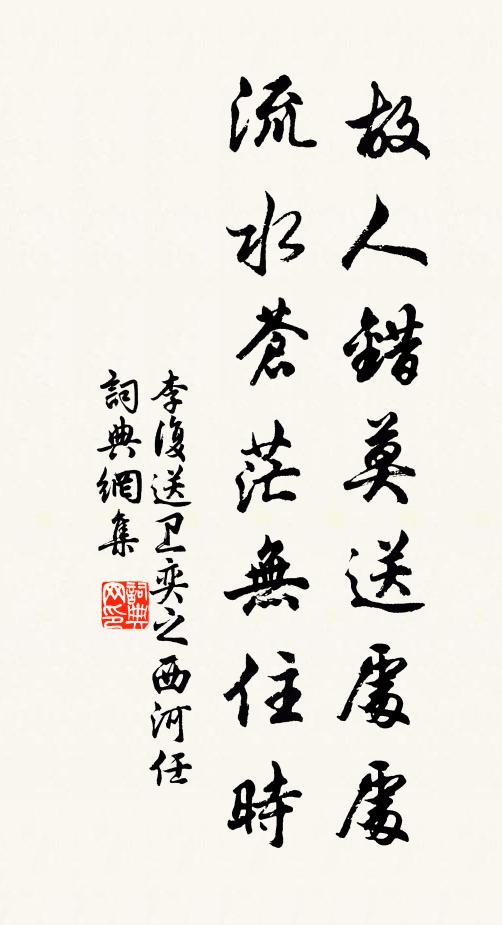 故人錯莫送處處
流水蒼茫無住時
李復送卫奕之西河任
詞典網集
詞典网印